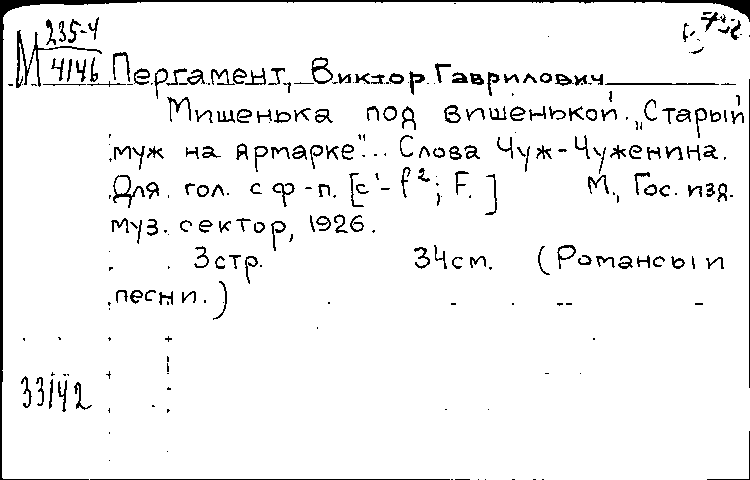 М 235-4
4146 Пергамент, Виктор Гаврилович
Мишенька под вишенькой. „Старый
муж на ярмарке"... Слова Чуж-Чуженина.
Для гол. с ф-п. [c¹-f²; F.] М., Гос. изд.
муз. сектор, 1926.
3 стр. 34 см. (Романсы и
песни.)
33142